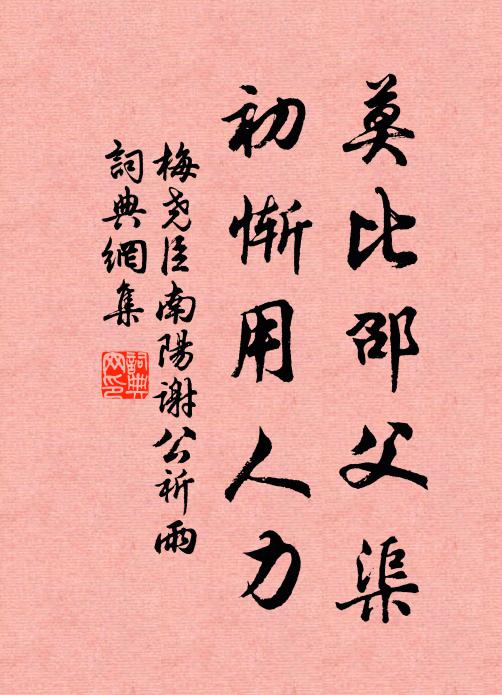 莫比邵父渠
初慚用人力
梅尧臣南陽谢公祈雨
詞典網集
詞典网印